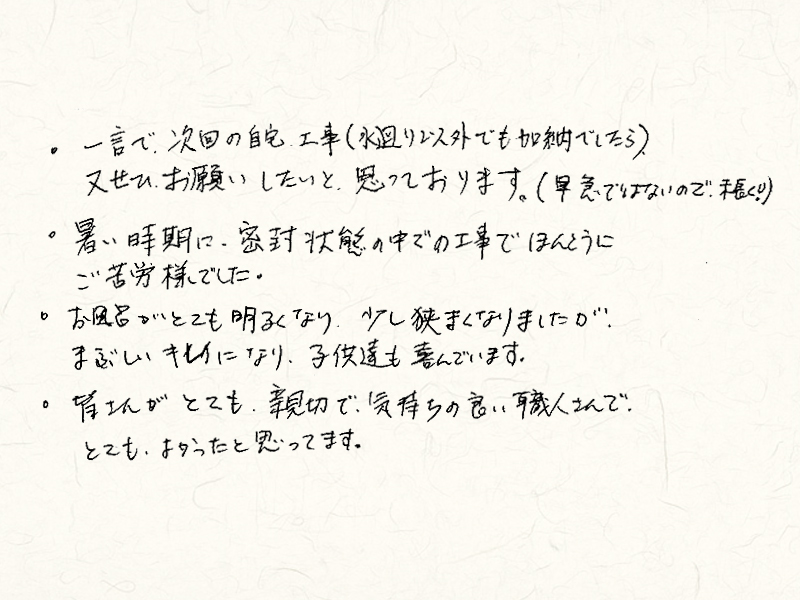 ・一言で、次回の自宅工事(水廻り以外でも加納でしたら)、
又ぜひ、お願いしたいと、思っております。(早急ではないので、末長く!!)
・暑い時期に、密封状態の中での工事でほんとうに
ご苦労様でした。
・お風呂がとても明るくなり、少し狭まくなりましたが、
まぶしいキレイになり、子供達も喜んでいます。
・皆さんがとても、親切で、気持ちの良い職人さんで、
とても、よかったと思ってます。